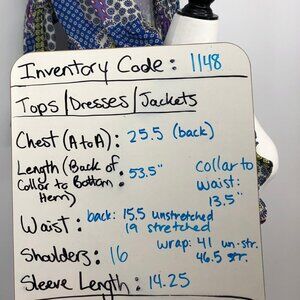 Inventory Code: 1148
Tops/Dresses/Jackets
Chest (A to A): 25.5 (back)
Length (Back of Collar to Bottom Hem): 53.5"
Collar to Waist: 13.5"
Waist: back: 15.5 unstretched
19 stretched
wrap: 41 un-str.
46.5 str.
Shoulders: 16
Sleeve Length: 14.25